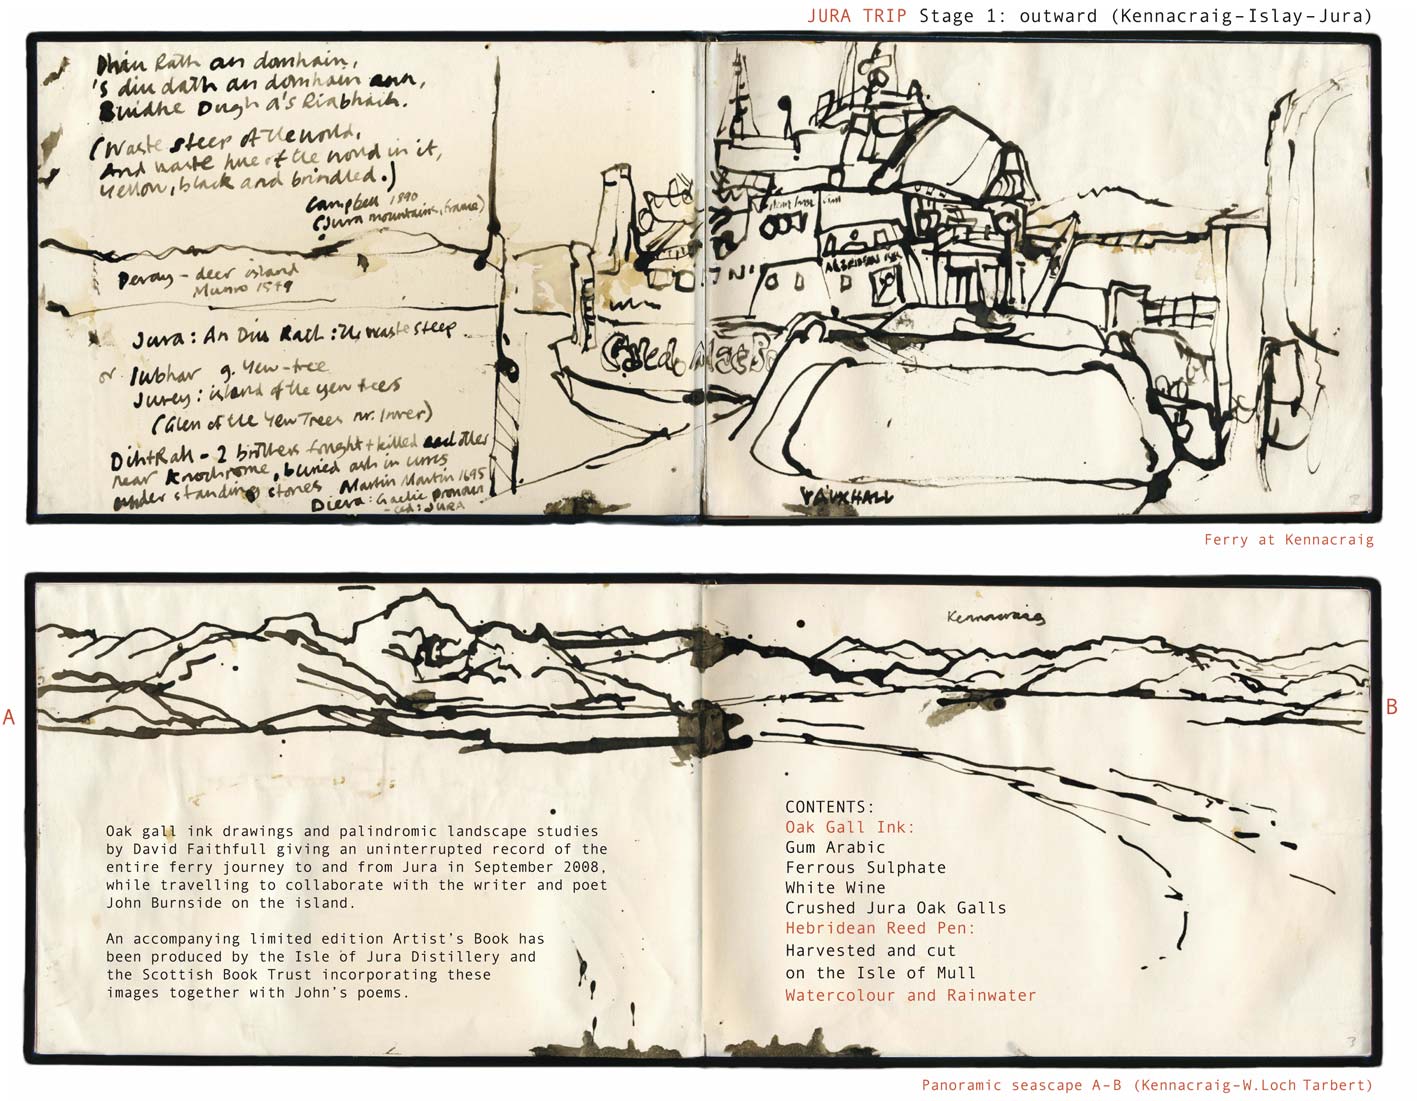 JURA TRIP Stage 1: outward (Kennacraig–Islay–Jura)
Dhiu Rath an domhain,
's diu dath an domhain ann,
Buidhe Dugh a's Riabhach.
(Waste steep of the world,
And waste hue of the world in it,
Yellow, black and brindled.)
Campbell 1890
(Jura mountains, frame)
Deray – deer island
Munro 1549
Jura: An Diu Rath: the waste steep
or Iubhar g. Yew-tree
Jurey: island of the yew trees
(Glen of the Yew Trees nr. Inver)
Dih+Rah – 2 brothers fought + killed each other
near Knochrome, buried ash in urns
under standing stones Martin Martin 1695
Diera: Gaelic pronoun
-ced: JURA
VAUXHALL
2
Ferry at Kennacraig
Kennacraig
A
B
Oak gall ink drawings and palindromic landscape studies
by David Faithfull giving an uninterrupted record of the
entire ferry journey to and from Jura in September 2008,
while travelling to collaborate with the writer and poet
John Burnside on the island.
An accompanying limited edition Artist's Book has
been produced by the Isle of Jura Distillery and
the Scottish Book Trust incorporating these
images together with John's poems.
CONTENTS:
Oak Gall Ink:
Gum Arabic
Ferrous Sulphate
White Wine
Crushed Jura Oak Galls
Hebridean Reed Pen:
Harvested and cut
on the Isle of Mull
Watercolour and Rainwater
3
Panoramic seascape A–B (Kennacraig–W.Loch Tarbert)